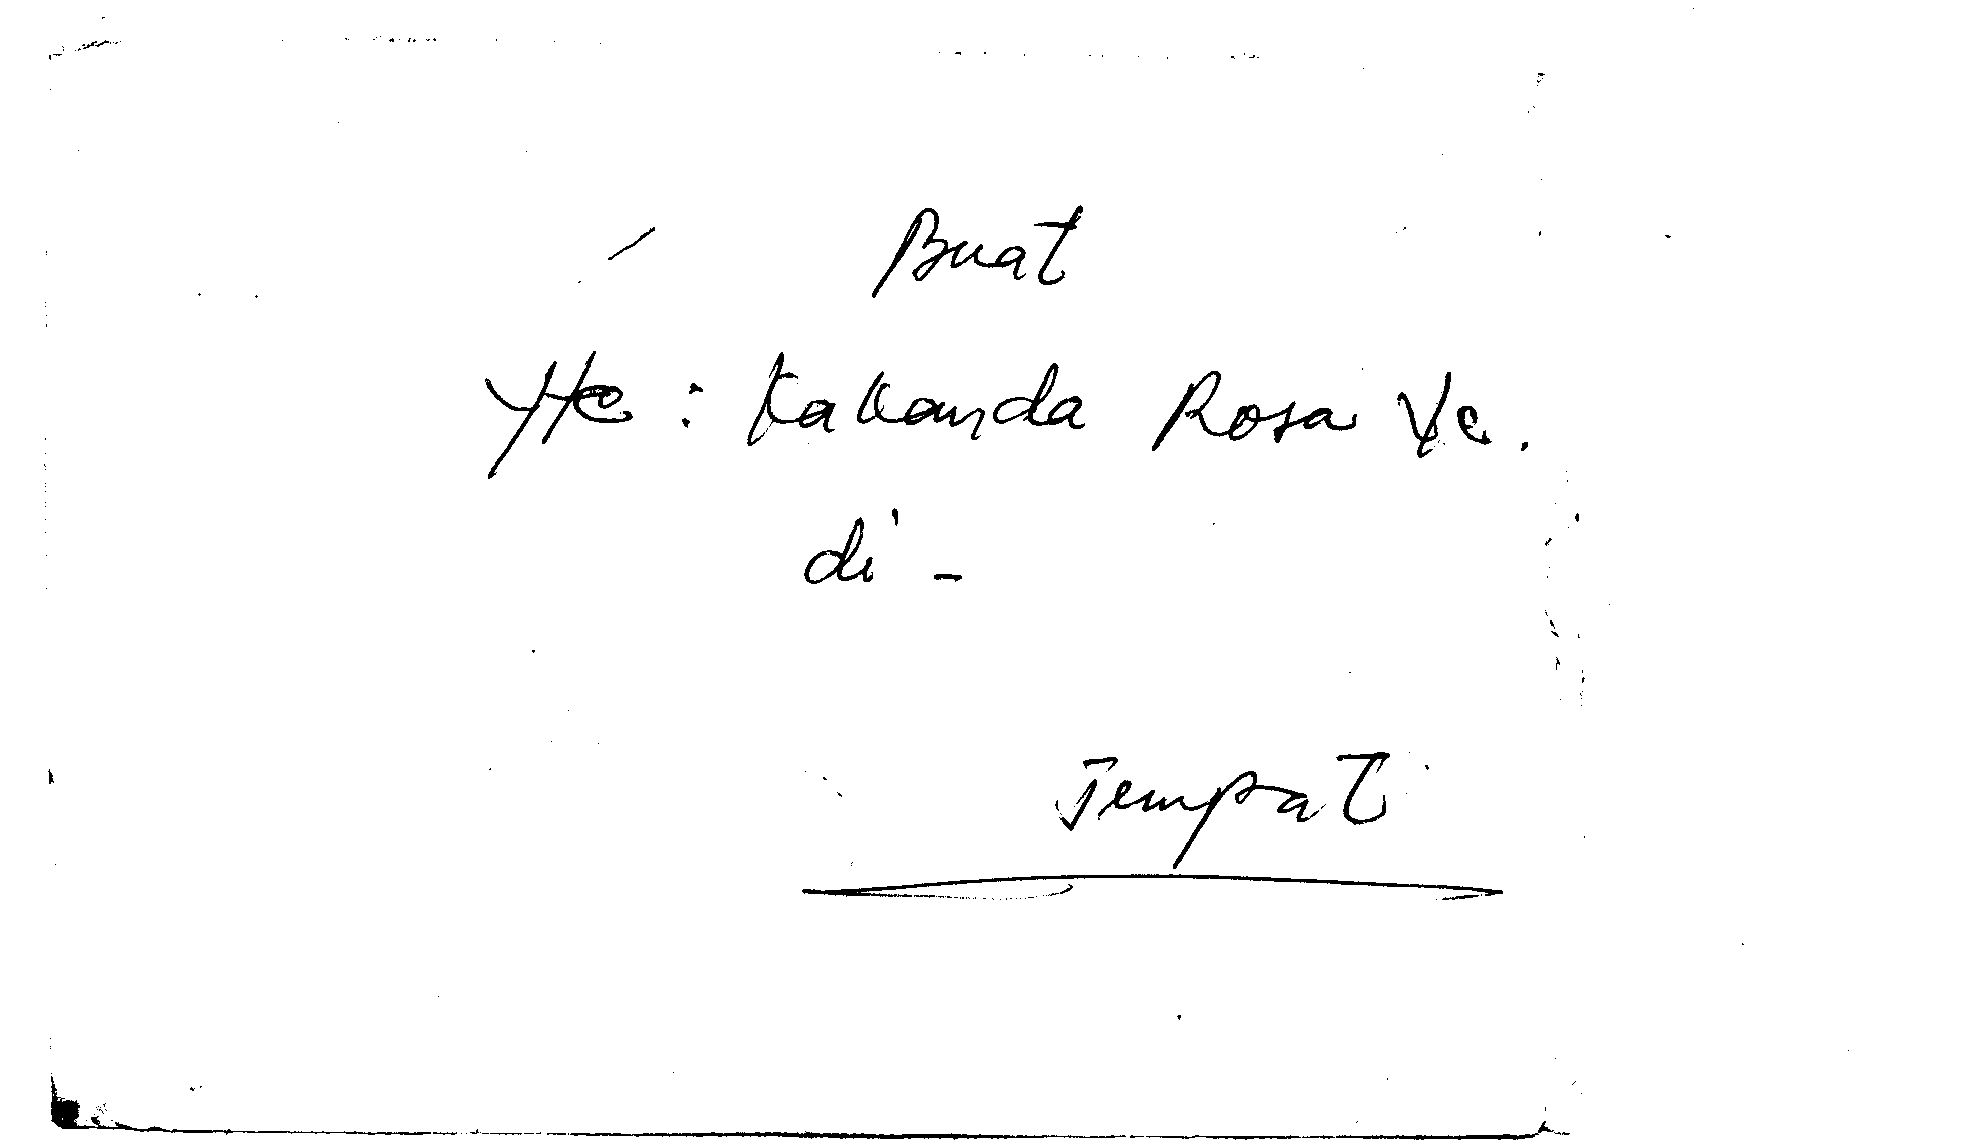 Buat
Ytc : Kakanda Rosa Yc.
di -
Tempat